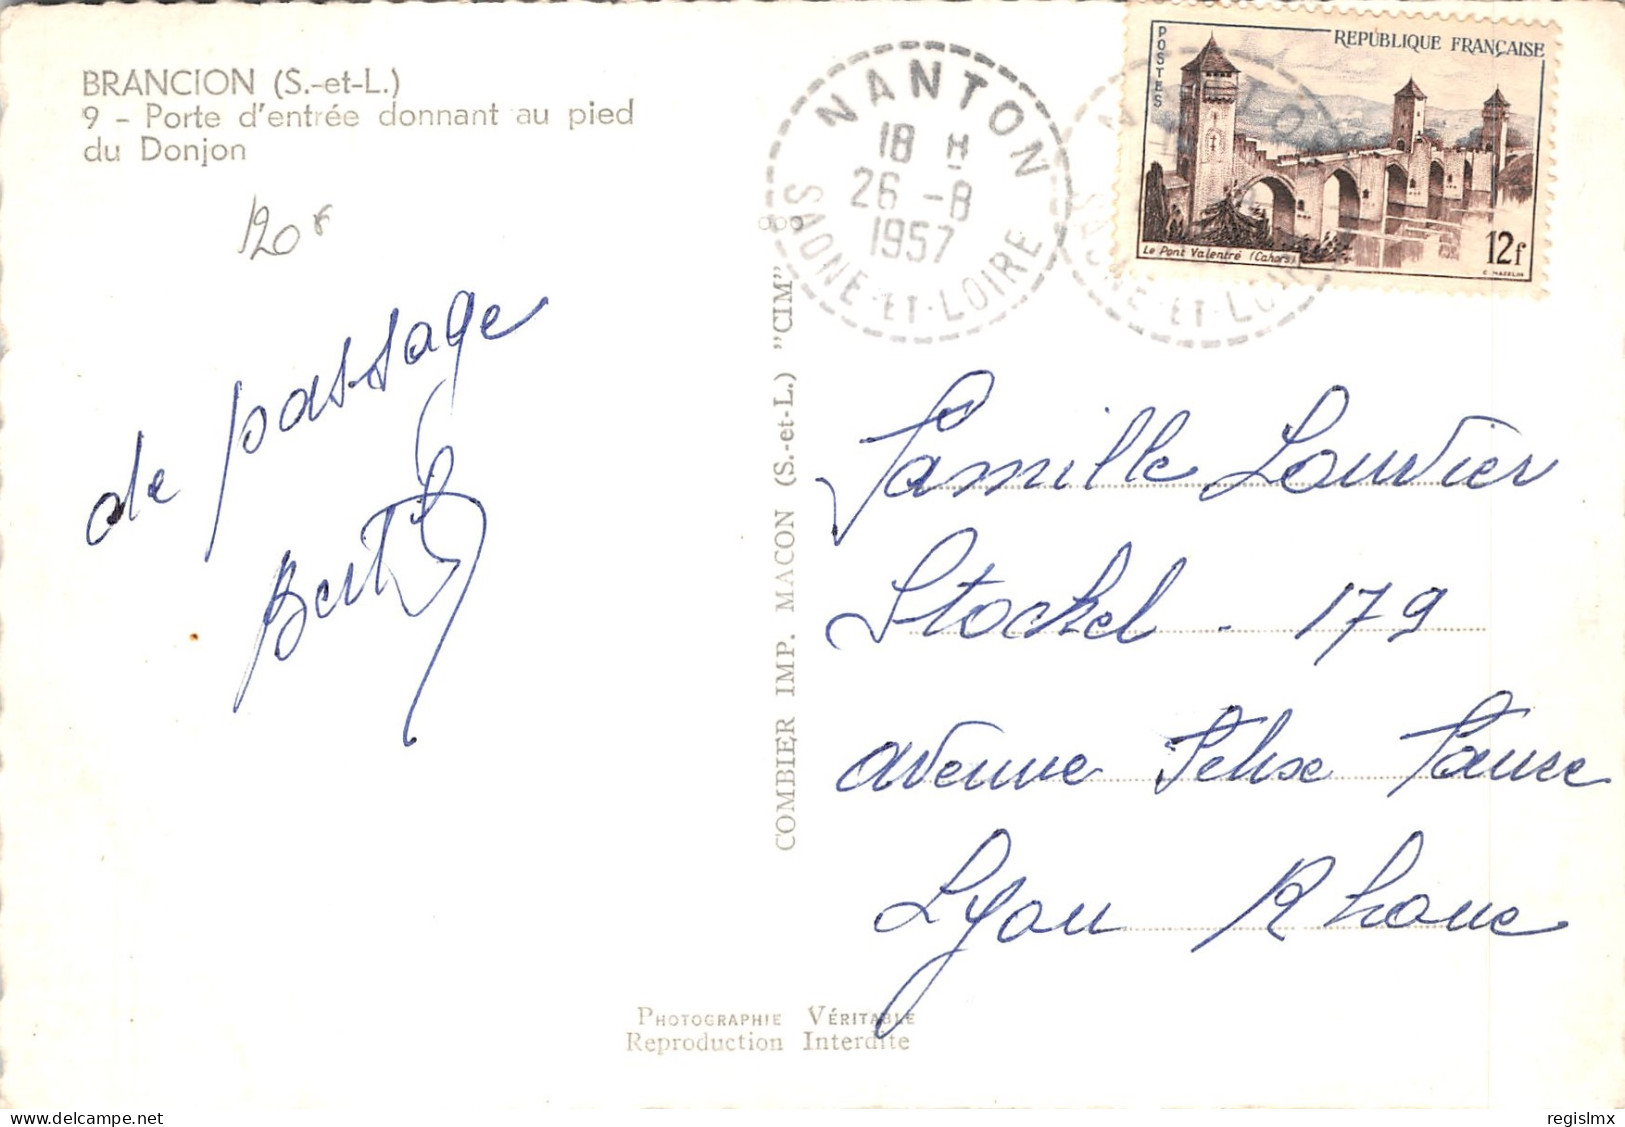 BRANCION (S.-et-L.)
9 - Porte d'entrée donnant au pied
du Donjon
120 F
de passage
NANTON
18 H
26 -8
1957
SAONE-ET-LOIRE
POSTES
REPUBLIQUE FRANÇAISE
Le Pont Valentré (Cahors)
12f
C. MAZELIN
COMBIER IMP. MACON (S.-et-L.) "CIM"
Famille Louvier
Stockel - 179
avenue Felix Faure
Lyon Rhone
PHOTOGRAPHIE VÉRITABLE
Reproduction Interdite
delcampe.net
regislmx